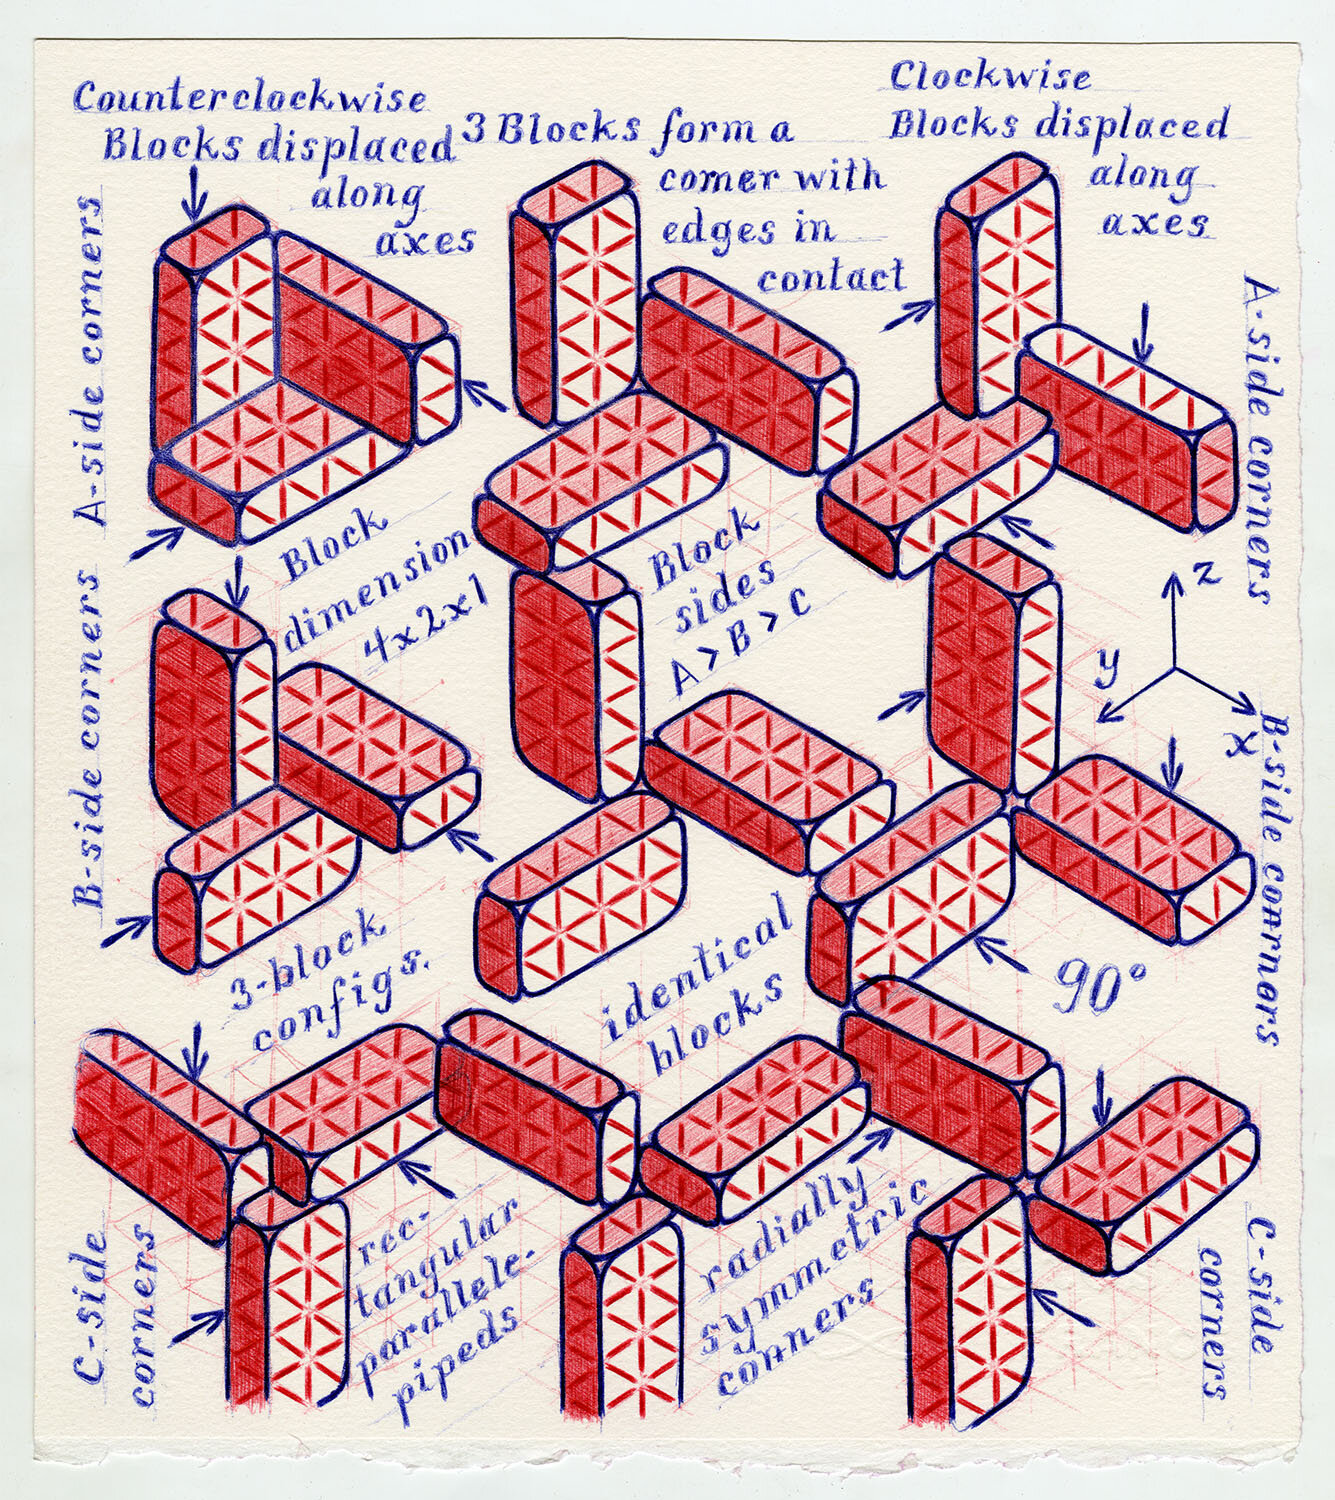 Counterclockwise
Blocks displaced
along
axes
3 Blocks form a
corner with
edges in
contact
Clockwise
Blocks displaced
along
axes
A-side corners
A-side corners
Block
dimension
4x2x1
Block
sides
A > B > C
z
y
x
B-side corners
B-side corners
3-block
configs.
identical
blocks
90°
C-side
corners
rec-
tangular
parallele-
pipeds
radially
symmetric
corners
C-side
corners